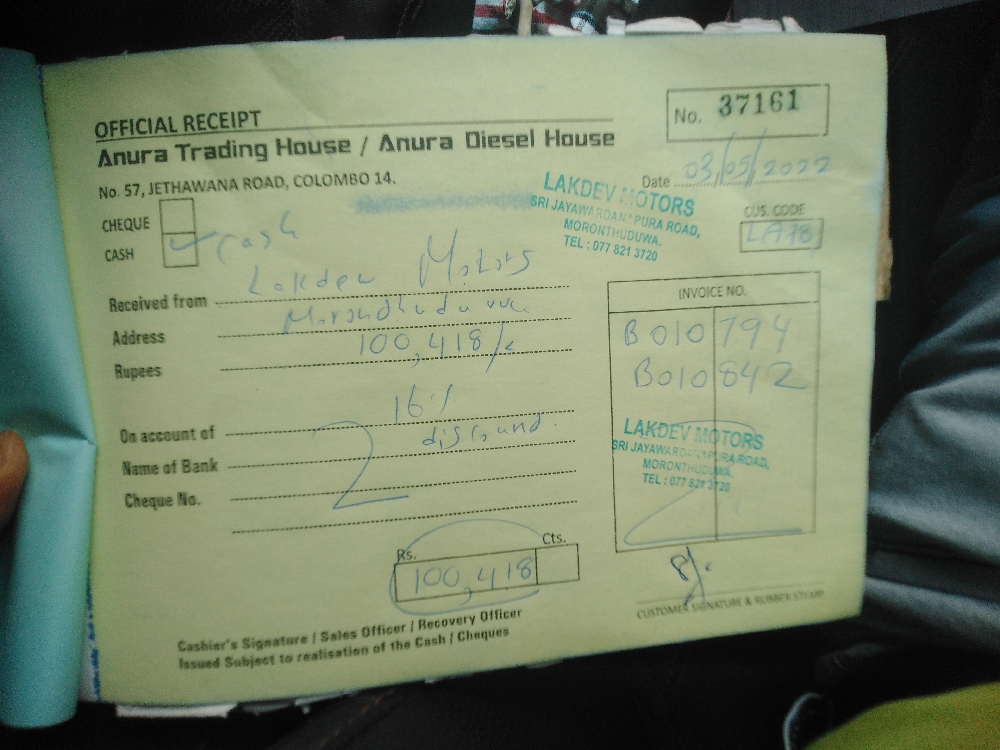 OFFICIAL RECEIPT
No. 37161
Anura Trading House / Anura Diesel House
No. 57, JETHAWANA ROAD, COLOMBO 14.
Date 03/05/2022
LAKDEV MOTORS
SRI JAYAWARDANAPURA ROAD,
MORONTHUDUWA.
TEL : 077 821 3720
CUS. CODE
LA78
CHEQUE
CASH Cash
Received from Lakdev Motors
Address
Rupees 100,418/-
16%
On account of discound.
Name of Bank
Cheque No.
INVOICE NO.
B010794
B010842
LAKDEV MOTORS
SRI JAYAWARDANAPURA ROAD,
MORONTHUDUWA.
TEL : 077 821 3720
Rs. Cts.
100,418
CUSTOMER SIGNATURE & RUBBER STAMP
Cashier's Signature / Sales Officer / Recovery Officer
Issued Subject to realisation of the Cash / Cheques